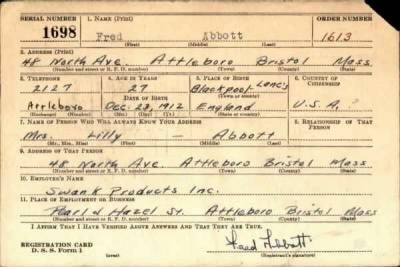 SERIAL NUMBER 1. NAME (Print) ORDER NUMBER
1698 Fred Abbott 1613
(First) (Middle) (Last)
2. ADDRESS (Print)
48 North Ave Attleboro Bristol Mass.
(Number and street or R. F. D. number) (Town) (County) (State)
3. TELEPHONE 4. AGE IN YEARS 5. PLACE OF BIRTH 6. COUNTRY OF CITIZENSHIP
2127 27 Blackpool Lanc's
Attleboro DATE OF BIRTH (Town or county)
Dec. 23, 1912 England U.S.A.
(Exchange) (Number) (Mo.) (Day) (Yr.) (State or country)
7. NAME OF PERSON WHO WILL ALWAYS KNOW YOUR ADDRESS 8. RELATIONSHIP OF THAT PERSON
Mrs. Lilly — Abbott
(Mr., Mrs., Miss) (First) (Middle) (Last)
9. ADDRESS OF THAT PERSON
48 North Ave. Attleboro Bristol Mass
(Number and street or R. F. D. number) (Town) (County) (State)
10. EMPLOYER'S NAME
Swank Products Inc.
11. PLACE OF EMPLOYMENT OR BUSINESS
Pearl & Hazel St. Attleboro Bristol Mass
(Number and street or R. F. D. number) (Town) (County) (State)
I AFFIRM THAT I HAVE VERIFIED ABOVE ANSWERS AND THAT THEY ARE TRUE.
REGISTRATION CARD
D. S. S. Form 1 Fred Abbott
(Registrant's signature)